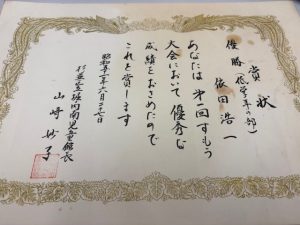 賞状
優勝(低学年の部)
依田浩一
あなたは第一回すもう
大会において優秀な
成績をおさめたので
これを賞します
昭和五十一年六月二十七日
杉並区立堀ノ内南児童館長
山崎妙子